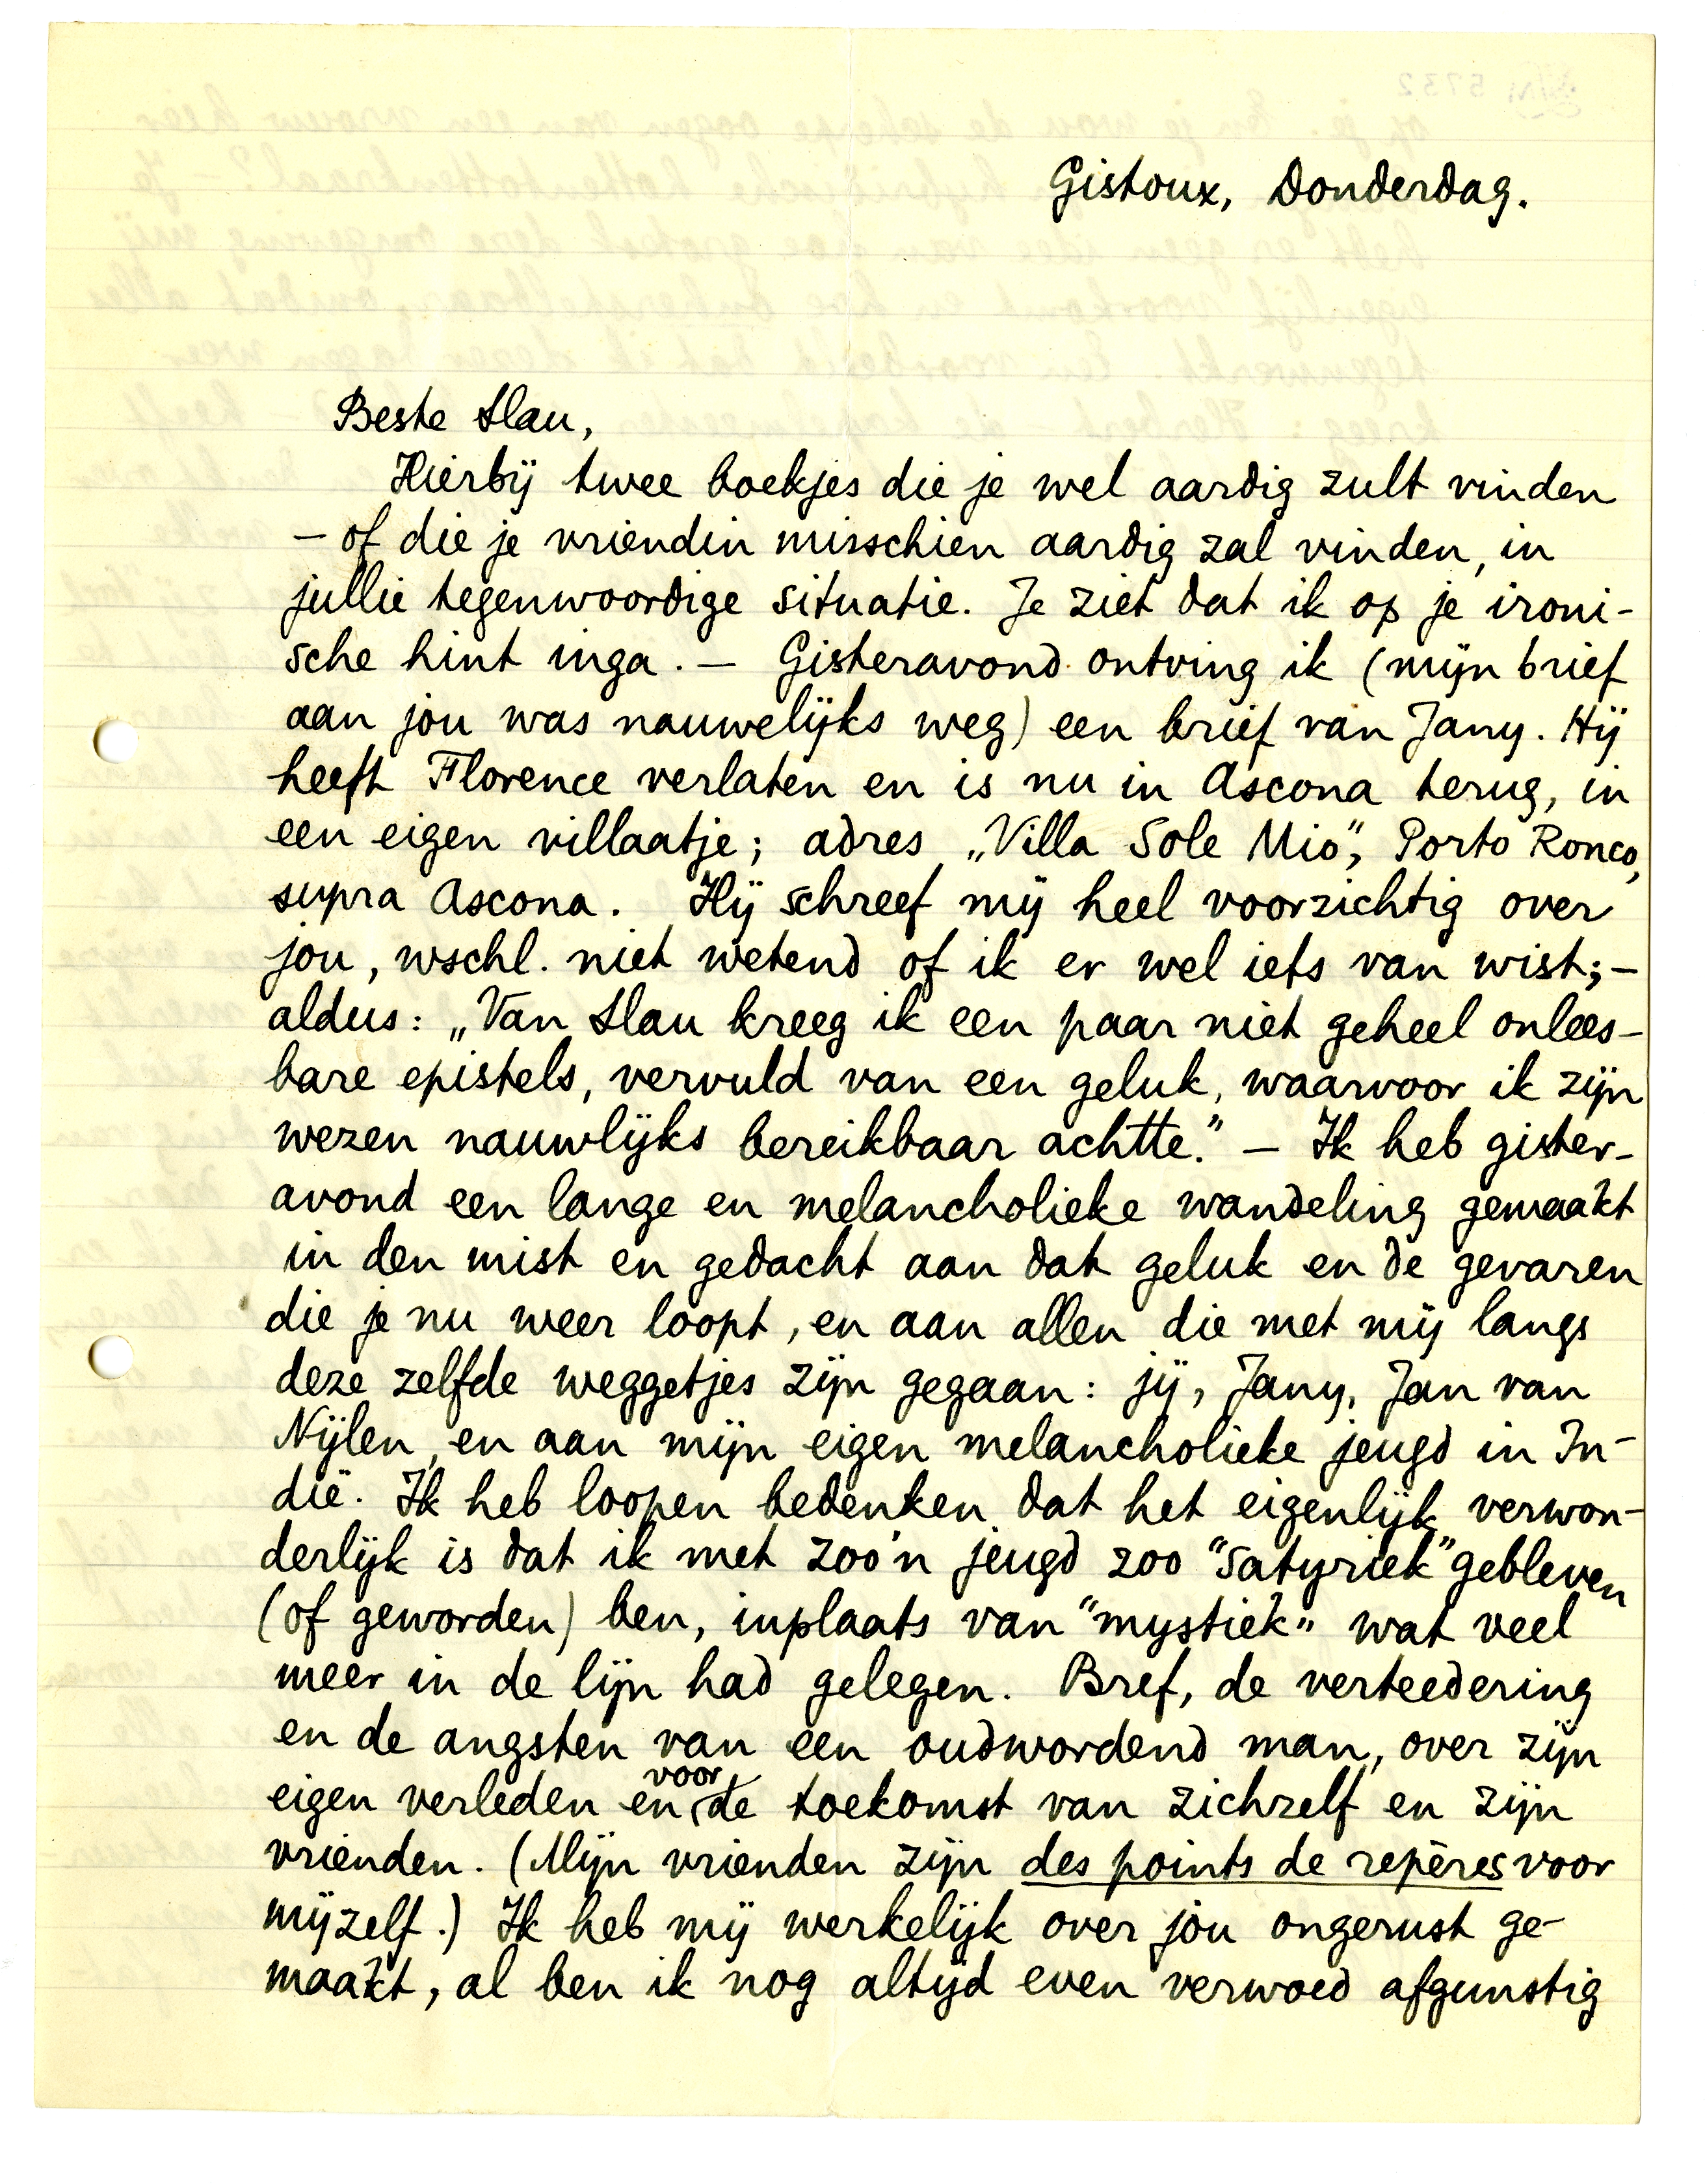 Gistoux, Donderdag.
Beste Slau,
Hierbij twee boekjes die je wel aardig zult vinden
– of die je vriendin misschien aardig zal vinden, in
jullie tegenwoordige situatie. Je ziet dat ik op je ironi-
sche hint inga. – Gisteravond ontving ik (mijn brief
aan jou was nauwelijks weg) een brief van Jany. Hij
heeft Florence verlaten en is nu in Ascona terug, in
een eigen villaatje; adres „Villa Sole Mio”, Porto Ronco,
supra Ascona. Hij schreef mij heel voorzichtig over
jou, wschl. niet wetend of ik er wel iets van wist; –
aldus: „Van Slau kreeg ik een paar niet geheel onlees-
bare epistels, vervuld van een geluk, waarvoor ik zijn
wezen nauwlijks bereikbaar achtte.” – Ik heb gister-
avond een lange en melancholieke wandeling gemaakt
in den mist en gedacht aan dat geluk en de gevaren
die je nu weer loopt, en aan allen die met mij langs
deze zelfde weggetjes zijn gegaan: jij, Jany, Jan van
Nijlen, en aan mijn eigen melancholieke jeugd in In-
dië. Ik heb loopen bedenken dat het eigenlijk verwon-
derlijk is dat ik met zoo'n jeugd zoo “satyriek” gebleven
(of geworden) ben, inplaats van “mystiek” wat veel
meer in de lijn had gelegen. Bref, de verteedering
en de angsten van een oudwordend man, over zijn
eigen verleden en voor de toekomst van zichzelf en zijn
vrienden. (Mijn vrienden zijn des points de repères voor
mijzelf.) Ik heb mij werkelijk over jou ongerust ge-
maakt, al ben ik nog altijd even verwoed afgunstig